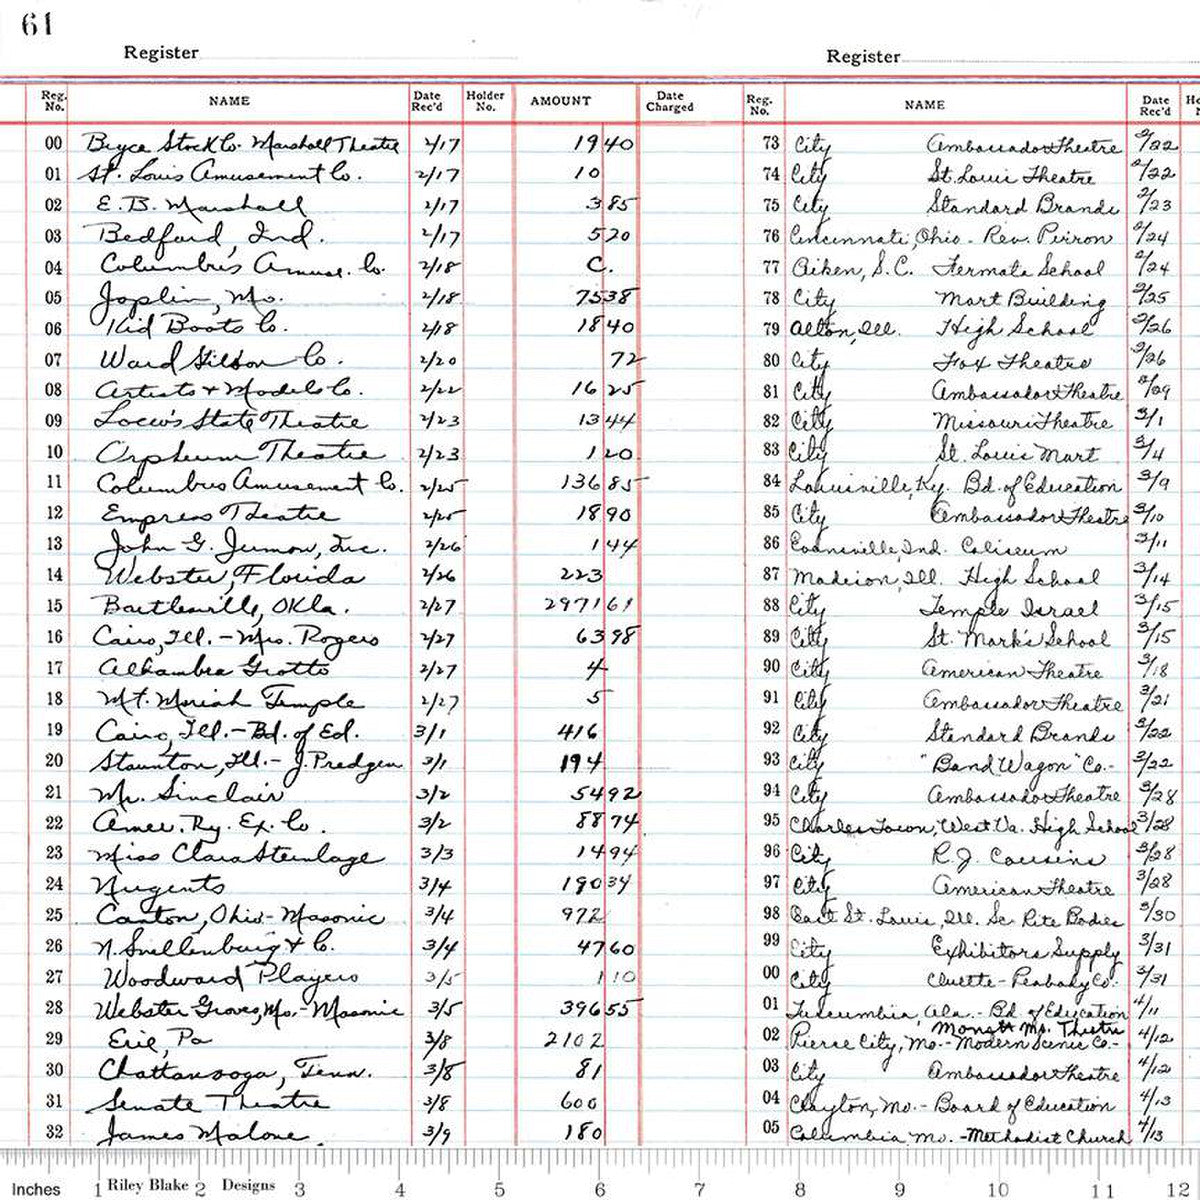 61
Register
Register
Reg. No. NAME Date Rec'd Holder No. AMOUNT Date Charged
Reg. No. NAME Date Rec'd
00 Bryce Stock Co. Marshall Theatre 2/17 19 40
01 St. Louis Amusement Co. 2/17 10
02 E. B. Marshall 2/17 3 85
03 Bedford, Ind. 2/17 520
04 Columbus Amuse. Co. 2/18 C.
05 Joplin, Mo. 2/18 75 38
06 Kid Boots Co. 2/18 18 40
07 Ward Co. 2/20 72
08 Artists & Models Co. 2/22 16 25
09 Loew's State Theatre 2/23 13 44
10 Orpheum Theatre 2/23 1 20
11 Columbus Amusement Co. 2/25 136 85
12 Empress Theatre 2/25 18 90
13 John G. Inc. 2/26 1 44
14 Webster, Florida 2/26 223
15 Bartlesville, Okla. 2/27 2971 61
16 Cairo, Ill. - Mrs. Rogers 2/27 63 98
17 Alhambra Grotto 2/27 4
18 Mt. Moriah Temple 2/27 5
19 Cairo, Ill. - Bd. of Ed. 3/1 416
20 Staunton, Ill. - J. Predgen 3/1 194
21 Mr. Sinclair 3/2 54 92
22 Amer. Ry. Ex. Co. 3/2 88 74
23 Miss Clara Steinlage 3/3 14 94
24 Nugents 3/4 190 34
25 Canton, Ohio - Masonic 3/4 972
26 N. Snellenburg & Co. 3/4 47 60
27 Woodward Players 3/5 1 10
28 Webster Groves, Mo. - Masonic 3/5 396 55
29 Erie, Pa 3/8 2102
30 Chattanooga, Tenn. 3/8 81
31 Senate Theatre 3/8 600
32 James Malone 3/9 180
73 City Ambassador Theatre 2/22
74 City St. Louis Theatre 2/22
75 City Standard Brands 2/23
76 Cincinnati, Ohio - Rev. Peiron 2/24
77 Aiken, S.C. Fermata School 2/24
78 City Mart Building 2/25
79 Alton, Ill. High School 2/26
80 City Fox Theatre 2/26
81 City Ambassador Theatre 2/29
82 City Missouri Theatre 3/1
83 City St. Louis Mart 3/4
84 Louisville, Ky. Bd. of Education 3/9
85 City Ambassador Theatre 3/10
86 Evansville, Ind. Coliseum 3/11
87 Madison, Ill. High School 3/14
88 City Temple Israel 3/15
89 City St. Mark's School 3/15
90 City American Theatre 3/18
91 City Ambassador Theatre 3/21
92 City Standard Brands 3/22
93 City "Band Wagon" Co. - 3/22
94 City Ambassador Theatre 3/28
95 Charles Town, West Va. High School 3/28
96 City R. J. Cousins 3/28
97 City American Theatre 3/28
98 East St. Louis, Ill. Sc. Rite Bodies 3/30
99 City Exhibitors Supply 3/31
00 City Cluett - Peabody Co. 3/31
01 Tuscumbia, Ala. - Bd. of Education 4/11
Monett Mo. Theatre
02 Pierce City, Mo. - Modern Scenic Co. - 4/12
03 City Ambassador Theatre 4/12
04 Clayton, Mo. - Board of Education 4/13
05 Columbia, Mo. - Methodist Church 4/13
Inches 1 Riley Blake 2 Designs 3 4 5 6 7 8 9 10 11 12